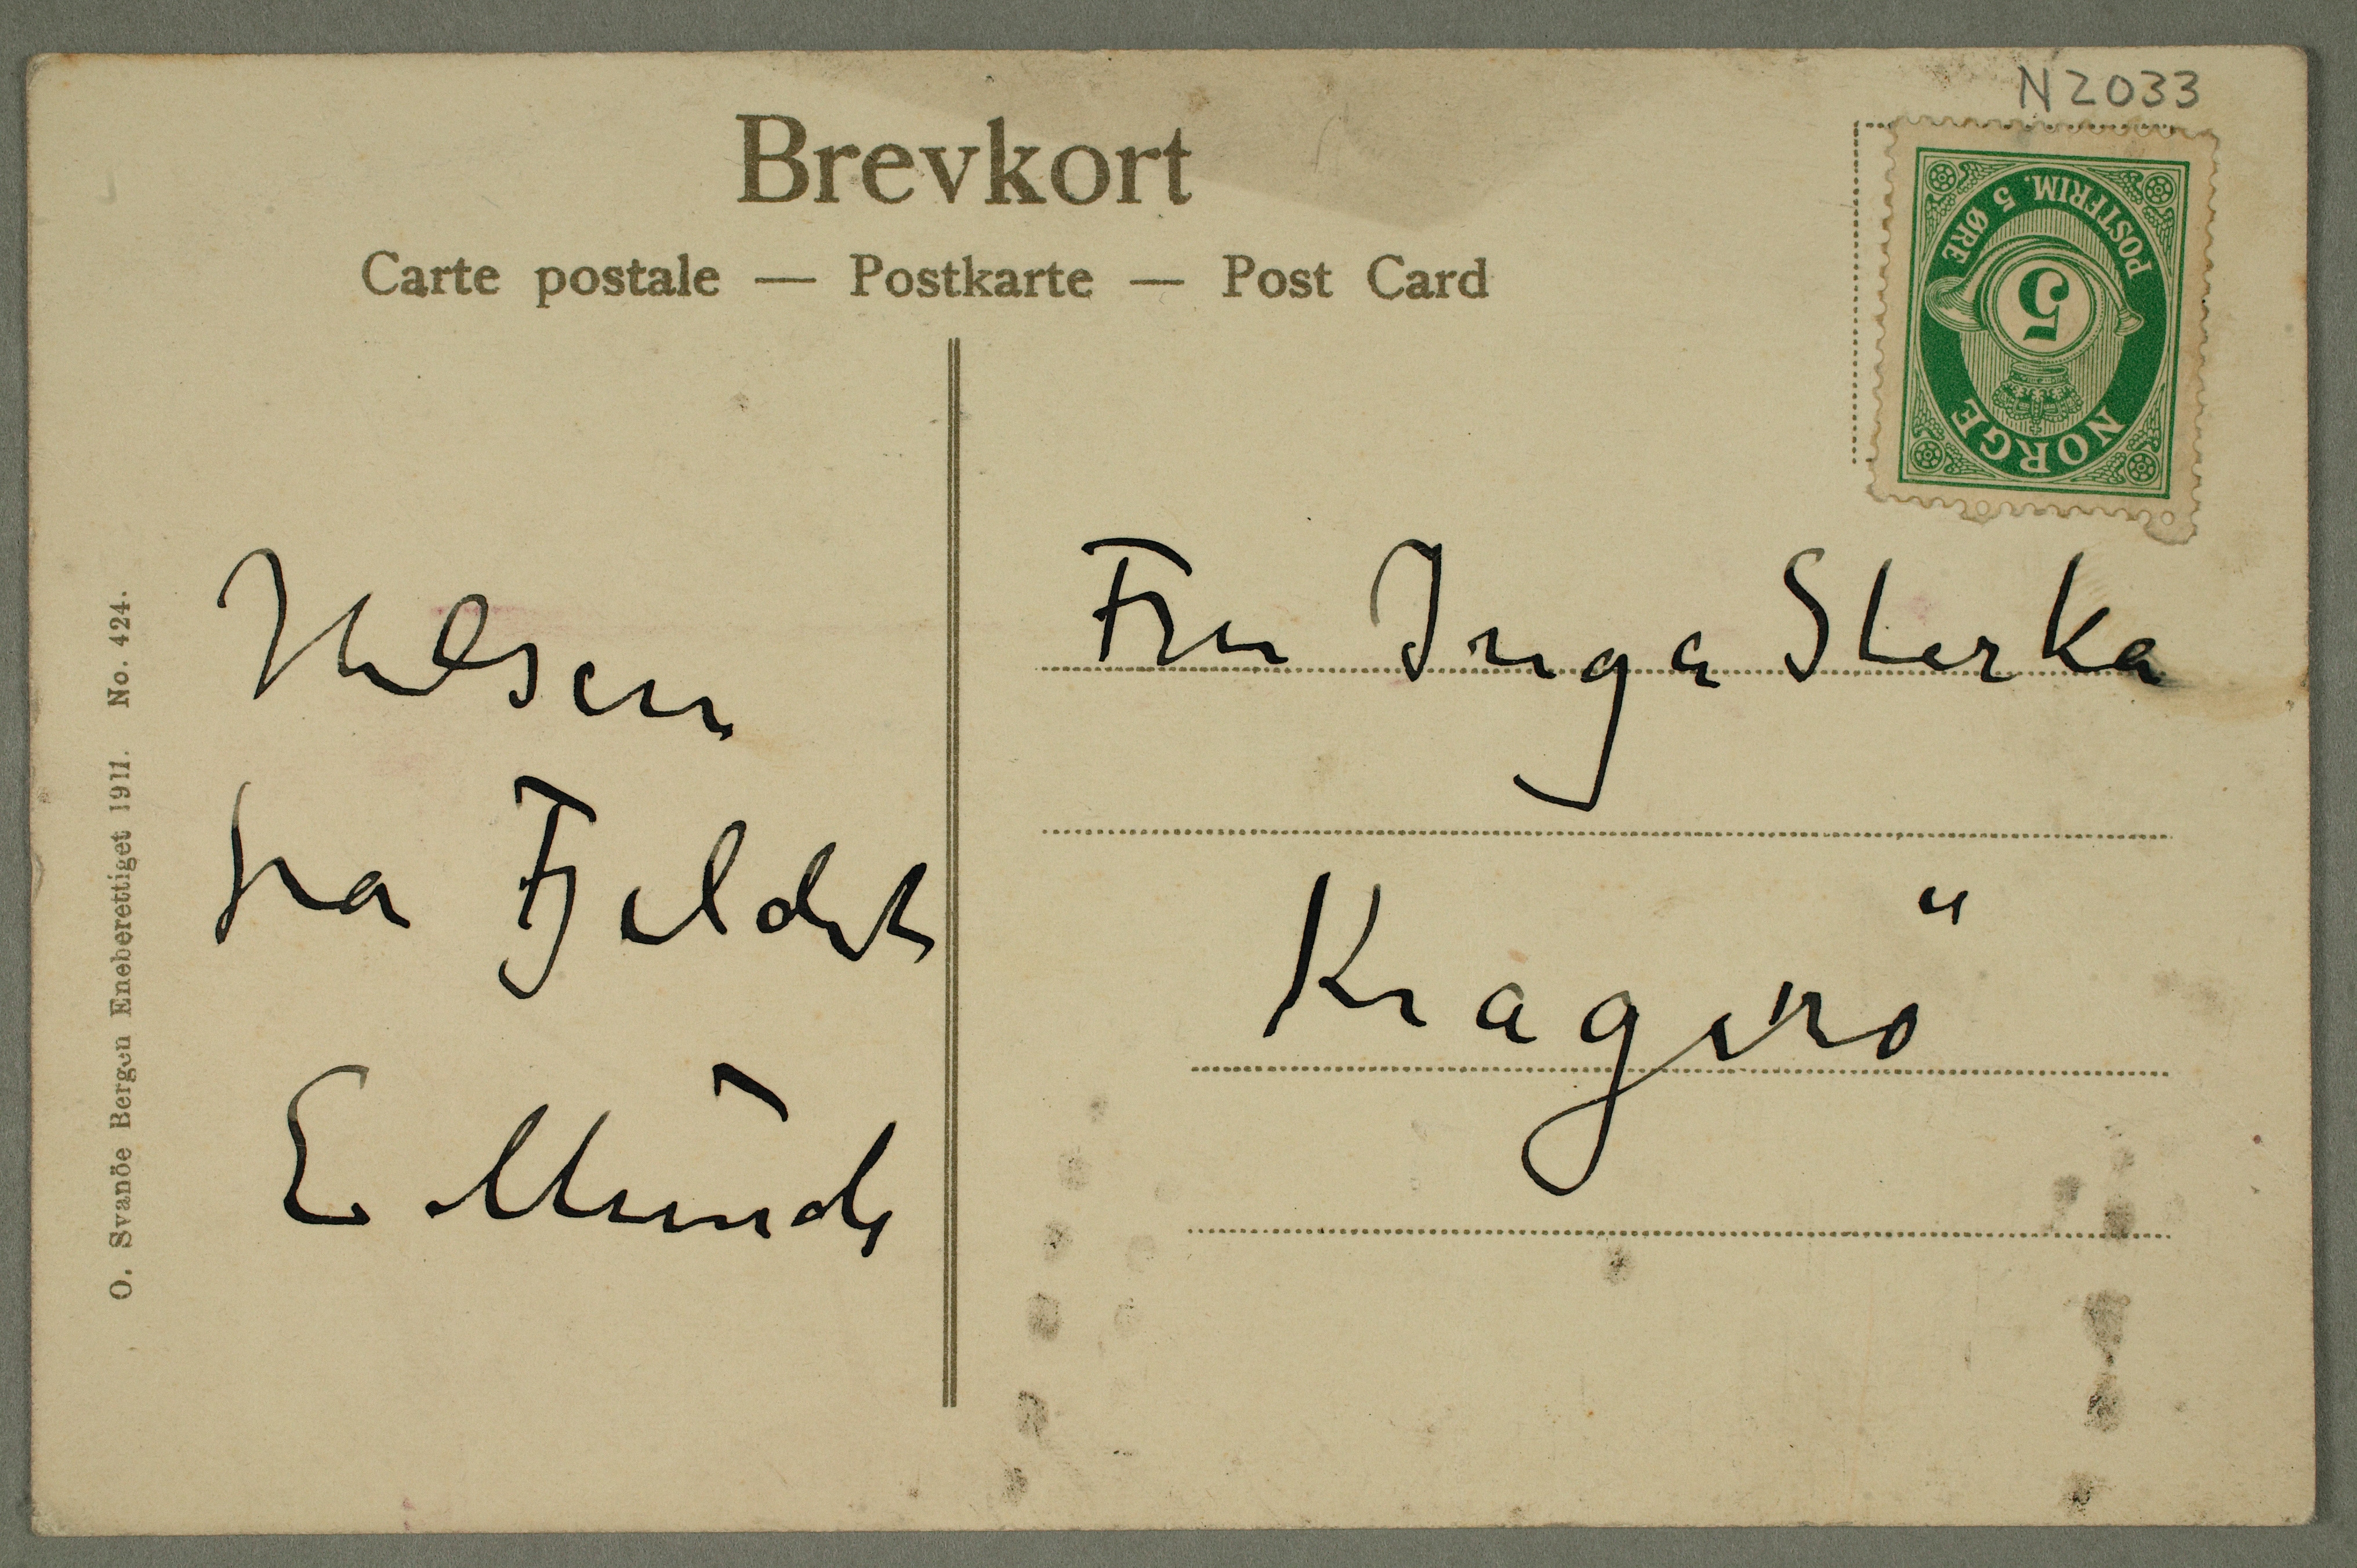 N 2033
Brevkort
Carte postale — Postkarte — Post Card
POSTFRIM. 5 ØRE
5
NORGE
O. Svanöe Bergen Eneberettiget 1911. No. 424.
Hilsen
fra Fjeldet
E Munch
Fru Inga Sterka
Kragerö